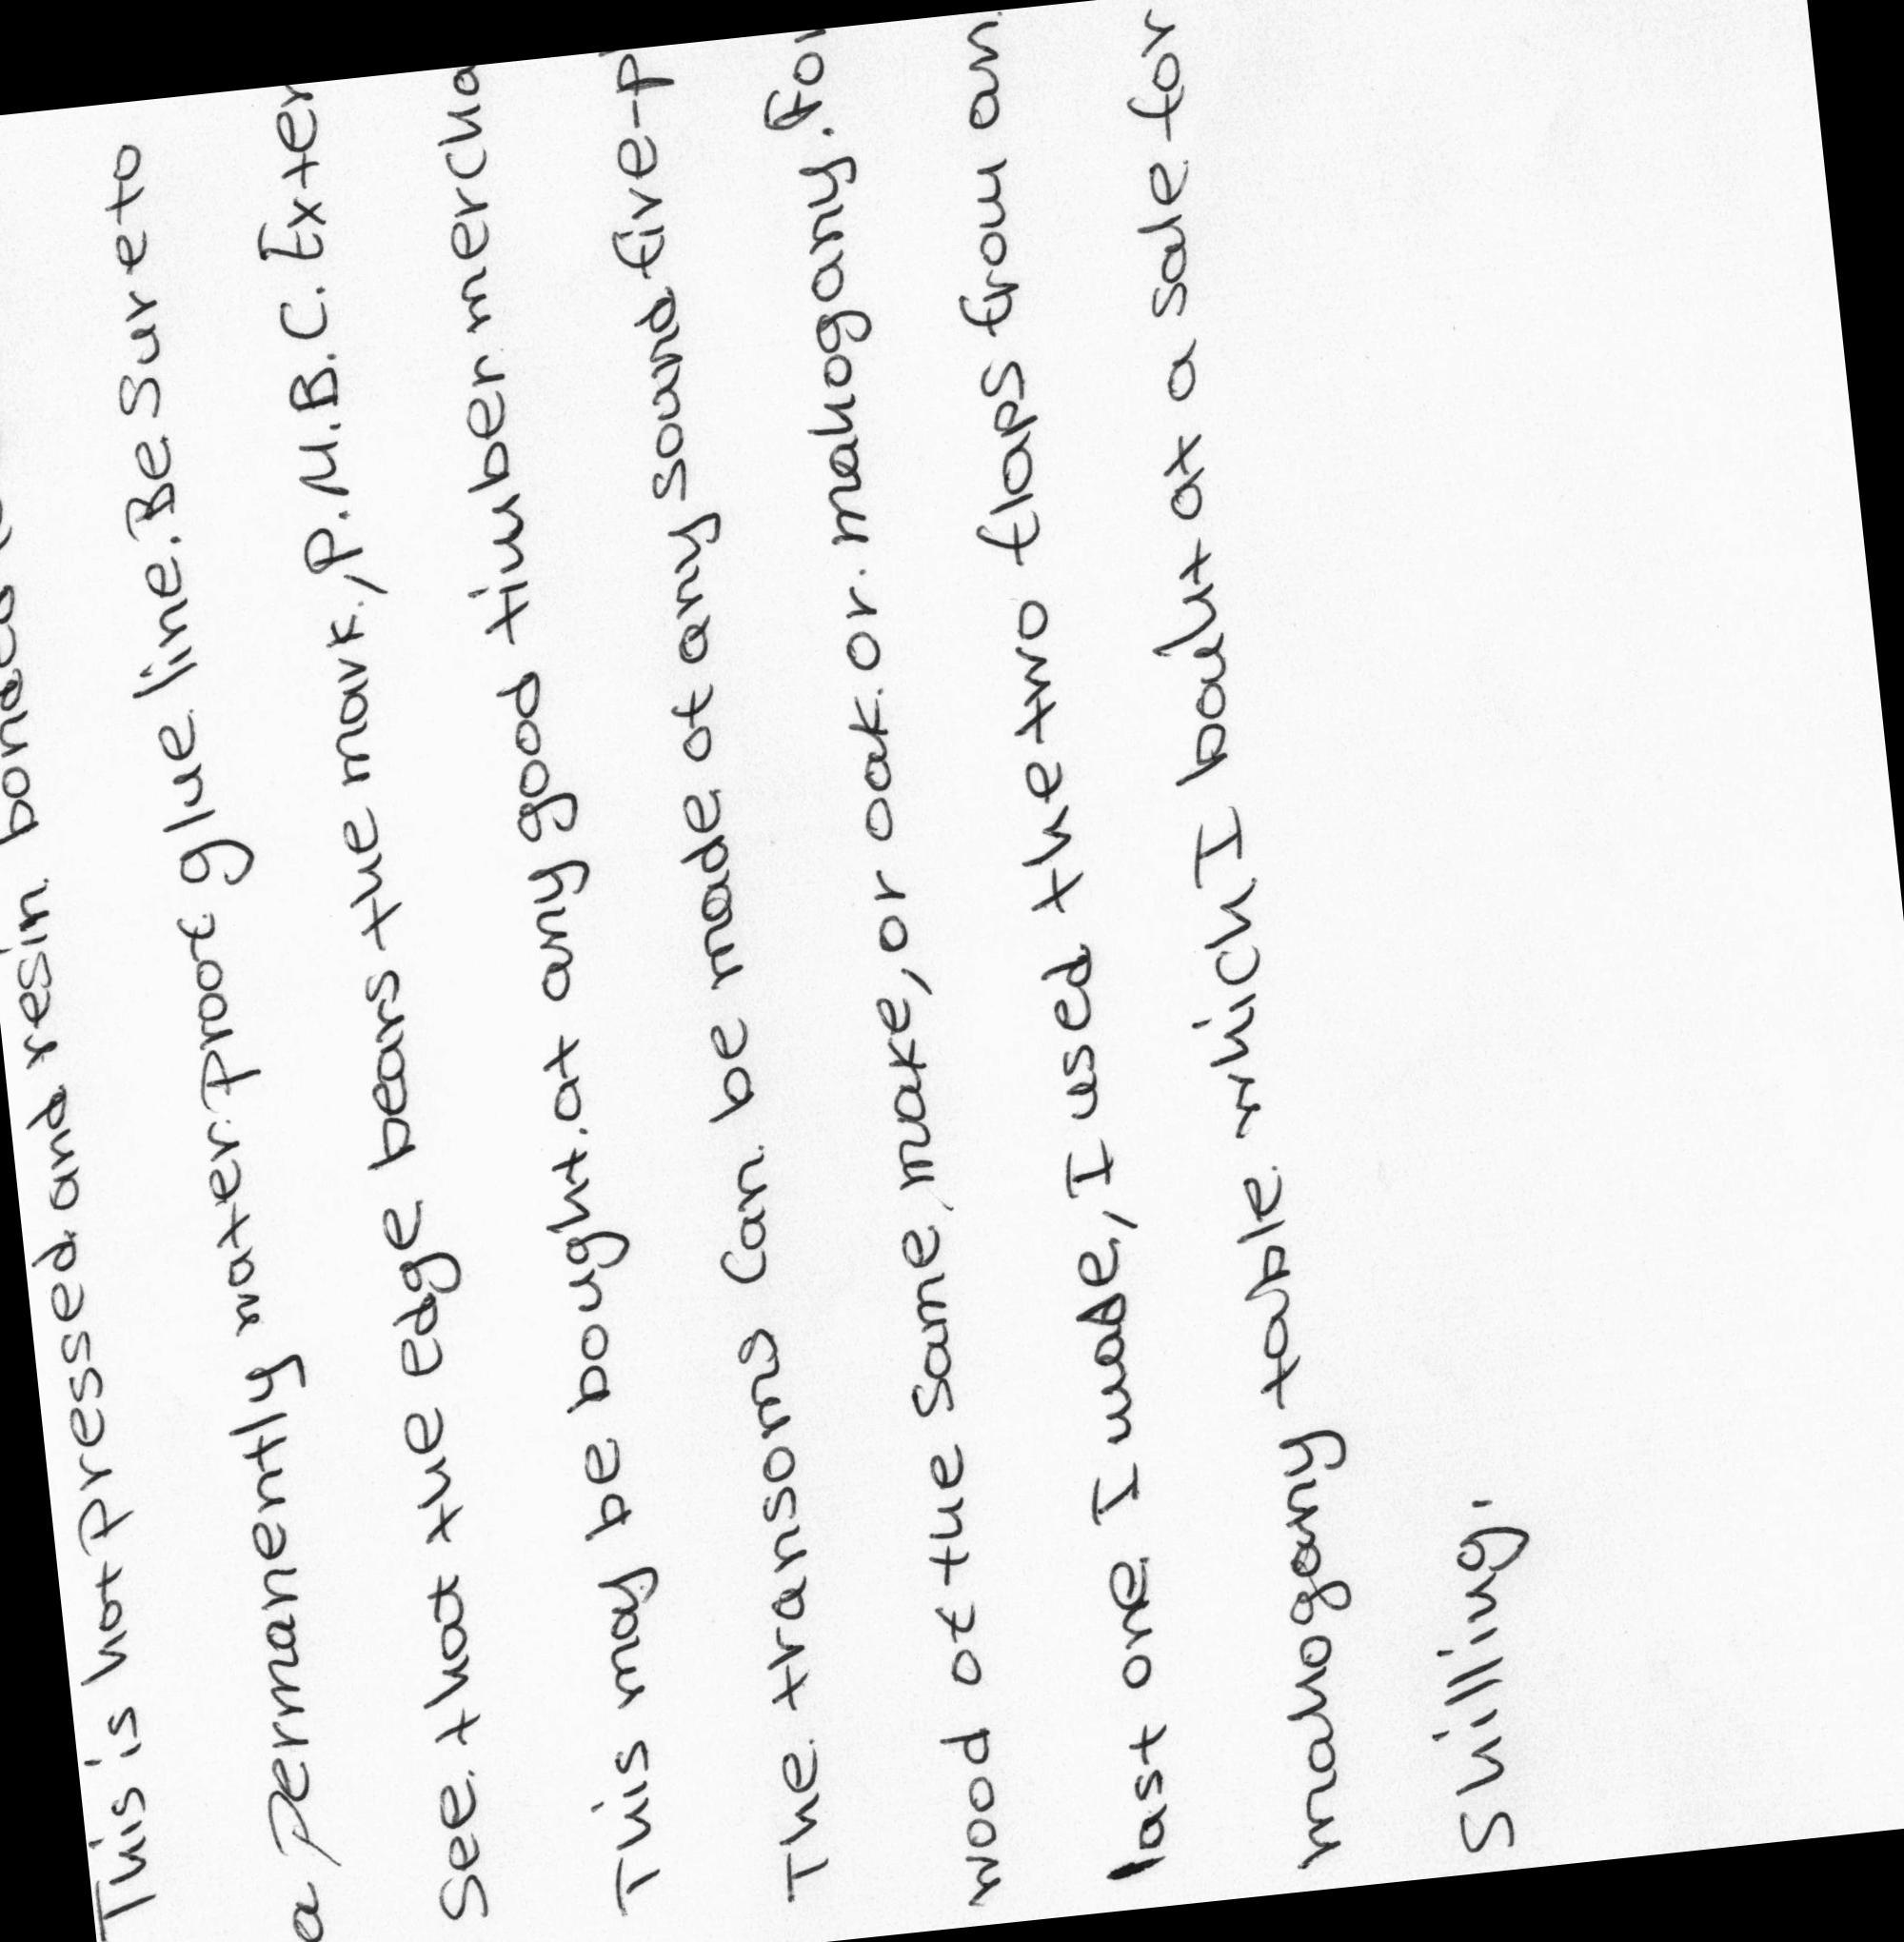 This is hot pressed and resin bonded
a permanently water proof glue line. Be Sure to
See that the edge bears the mark, P.M.B.C. Exter
This may be bought at any good timber mercha
The transoms can be made of any sound five-p
wood of the same make, or oak or mahogany. For
last one I made, I used the two flaps from an
mahogany table which I bouht at a sale for
Shilling.